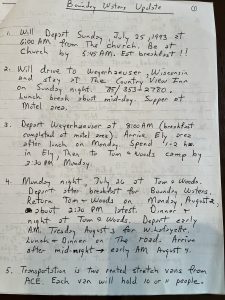 Boundry Waters Update ①
1. Will Depart Sunday, July 25, 1993 at
6:00 AM from the church. Be at
Church by 5:45 AM. Eat breakfast !!
2. Will drive to Weyerhaeuser, Wisconsin
and stay at the Country View Inn
on Sunday night. 715/353-2780.
Lunch break about mid-day. Supper at
Motel area.
3. Depart Weyerhaeuser at 8:00 AM (breakfast
completed at motel area). Arrive Ely area
after lunch on Monday. Spend 1-2 hrs
in Ely. Then to Tom & Woods camp by
2:30 PM, Monday.
4. Monday night, July 26 at Tom & Woods.
Depart after breakfast for Boundry Waters.
Return Tom & Woods on Monday, August 2,
about 2:30 PM latest. Dinner &
night at Tom & Woods. Depart early
AM, Tuesday August 3 for W. Lafayette.
Lunch & Dinner on the road. Arrive
after midnight → early AM August 4.
5. Transportation is two rented stretch vans from
ACE. Each van will hold 10 or 11 people.